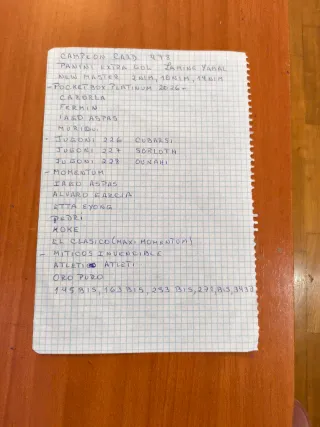 CAMPEON CARD 448
PANINI EXTRA GOL LAMINE YAMAL
NEW MASTER 2NM, 10NM, 14NM
- POCKET BOX PLATINUM 2026 -
CAZORLA
FERMIN
IAGO ASPAS
MURIQUI
- JUGONI 226 CUBARSI
JUGONI 227 SORLOTH
JUGONI 228 OUNAHI
- MOMENTUM
IAGO ASPAS
ALVARO GARCIA
ETTA EYONG
PEDRI
KOKE
EL CLASICO (MAXI MOMENTUM)
- MITICOS INVENCIBLE
ATLETI ATLETI
ORO PURO
145 BIS, 163 BIS, 253 BIS, 273 BIS,